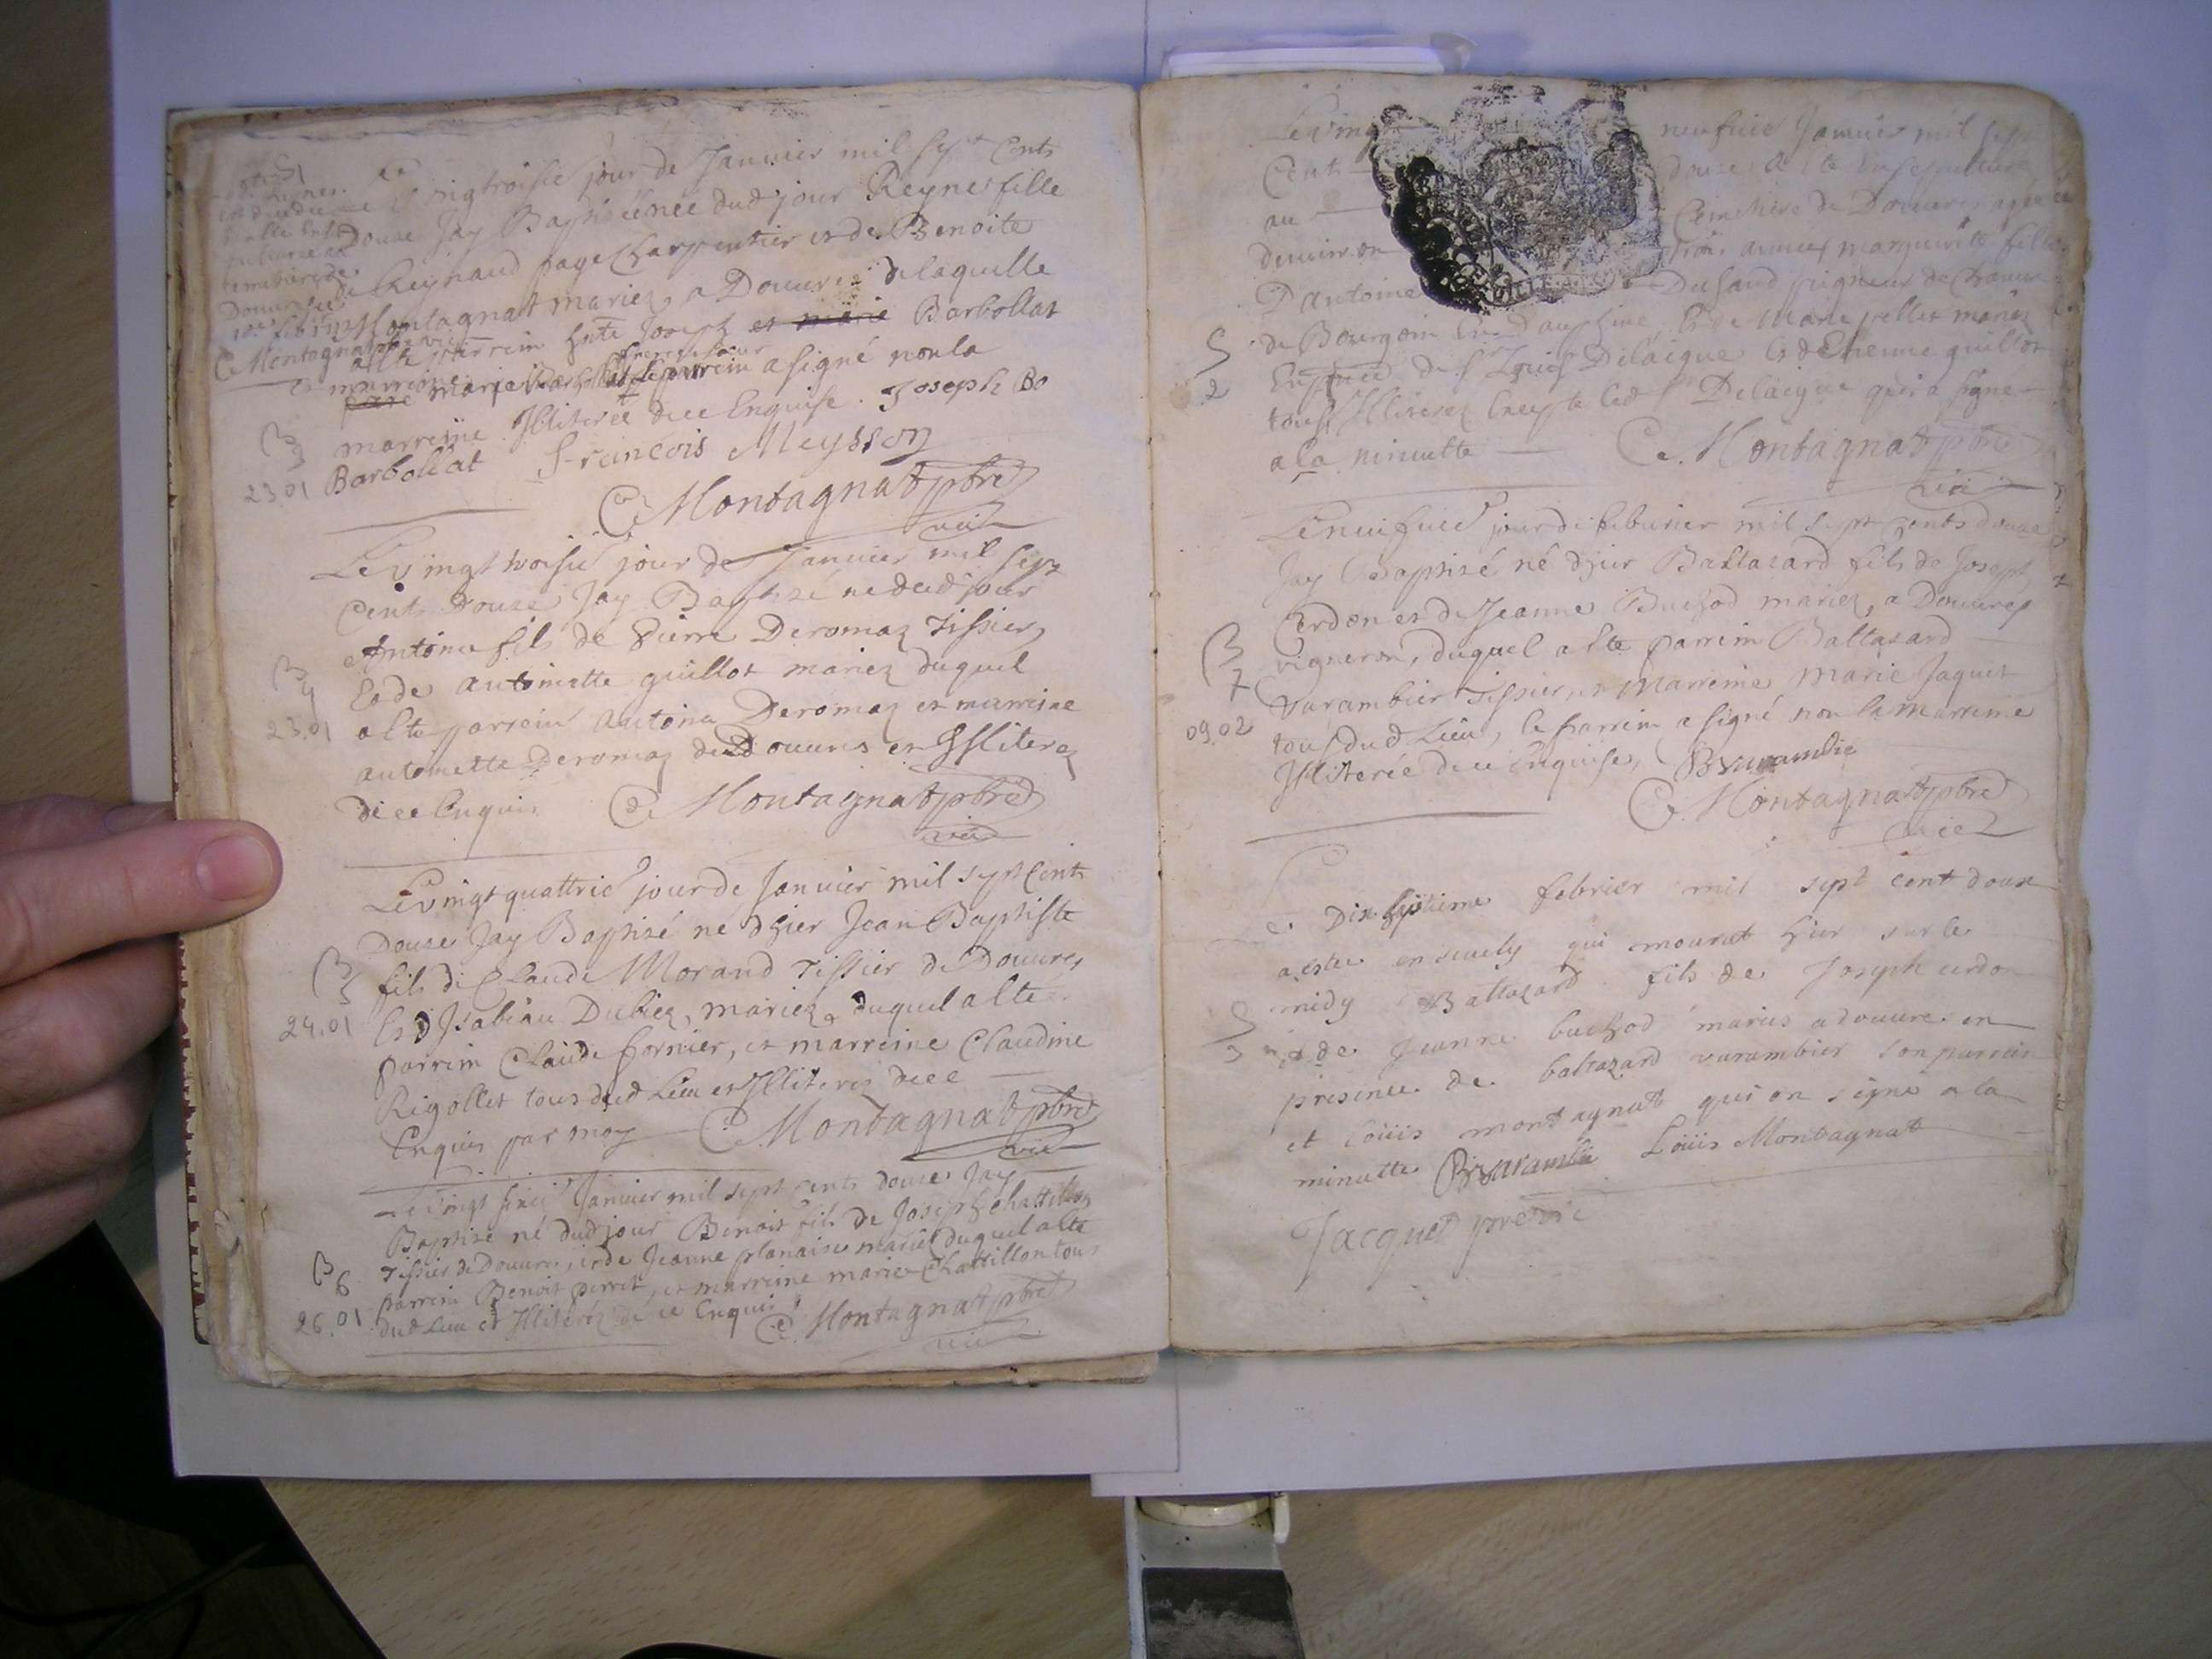 Le vingtroisie jour de Januier mil sept Cents
Douze Jay Baptisé née dud jour Reyne fille
de Reynaud page Charpentier et de Benoite
Montagnat mariez a Douures de laquelle
a esté parrein Joseph et marie Barbollat
et marreine marie Barbollat le parrein a signé non la
marreine Illiterée de ce Enquise. Joseph Bo
Barbollat François Meysson
C. Montagnat pbre
vic
B
3
23.01
Le vingt troisie jour de Januier mil sept
Cents Douze Jay Baptizé né dud jour
Antoine fils de Pierre Deromaz Tissier
Et de antoinette guillot mariez duquel
a esté parrein antoine Deromaz et marreine
antoinette Deromaz de Douures et Illiterez
de ce Enquis C. Montagnat pbre
vic
B
4
23.01
Le vingt quattrie jour de Januier mil sept Cents
Douze Jay Baptizé né dhier Jean Baptiste
fils de Claude Morand Tissier de Douures
Et d Isabeau Dubiez, mariez, duquel a esté
parrein Claude fornier, et marreine Claudine
Rigollet tous dud Lieu et Illiterez de ce
Enquis par moy C. Montagnat pbre
vic
B
5
24.01
Le vingt sixie Januier mil sept cents douze Jay
Baptisé né dud jour Benoit fils de Joseph chattillon
Tissier de Douures, et de Jeanne planaise mariez duquel a esté
parrein Benoit perret, et marreine marie Chattillon tous
dud Lieu et Illiterez de ce Enquis C. Montagnat pbre
vic
B
6
26.01
Le vingt neufuie Januier mil sept
Cent douze a esté Enseuelie
au Cemetiere de Douures agée
denuiron trois années marguerite fille
D antoine Dusaud
de Bourgoin En Dauphiné, Et de Marie pellet mariez
En pnce de Sr Louis Delaigue Et d Etienne guillot
tous Illiterez Excepté led Sr Delaigue qui a signé
a la minutte C. Montagnat pbre
vic
S
2
Le neufuie jour de feburier mil sept cents douze
Jay Baptizé né dhier Baltazard fils de Joseph
Cerdon et de Jeanne Buchod mariez, a Douures
vigneron, duquel a esté parrein Baltazard
Varambier Tissier, et Marreine marie Jaquet
tous dud Lieu, le parrein a signé non la marreine
Illiterée de ce Enquise, B varambie
C. Montagnat pbre
vic
B
7
09.02
Le Dix septieme febrier mil sept cent douze
a estee ensevely qui mourut hier sur le
midy Baltazard fils de Joseph cerdon
et de Jeanne buchod mariés a douure en
presence de baltazard varambier son parrein
et Loüis montagnat qui on signe a la
minutte B varambie Loüis Montagnat
Jacquet pre vic
S
3